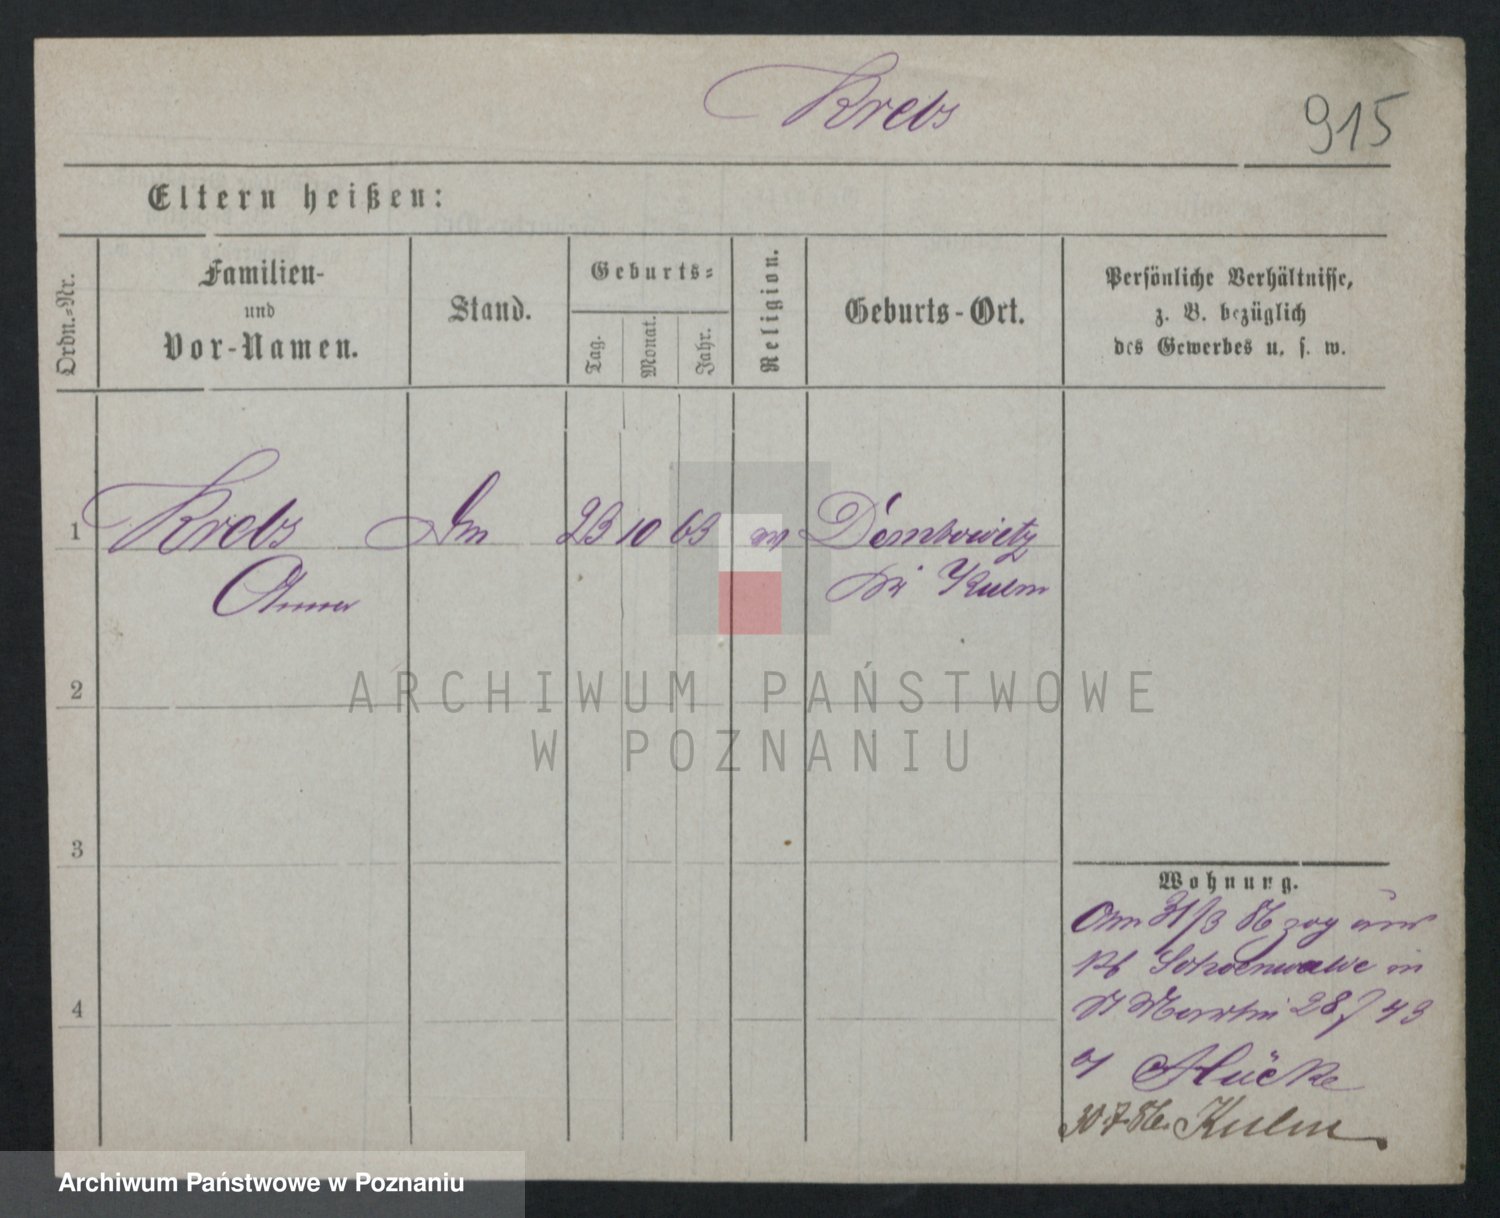 Krebs
915
Eltern heißen:
Ordn.-Nr.
Familien-
und
Vor-Namen.
Stand.
Geburts-
Tag.
Monat.
Jahr.
Religion.
Geburts-Ort.
Persönliche Verhältnisse,
z. B. bezüglich
des Gewerbes u. s. w.
1 Krebs 23 10 63 Dembowietz
Anna Kulm
2
3
4
Wohnung.
Am 31/3 86 zog
in
St Martin 28/43
Hücke
30.7.86. Kulm
ARCHIWUM PAŃSTWOWE
W POZNANIU
Archiwum Państwowe w Poznaniu